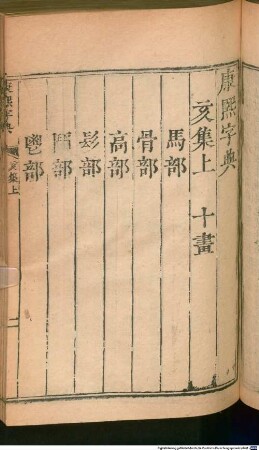 康熙字典
亥集上 十畫
馬部
骨部
高部
髟部
鬥部
鬯部
康熙字典
亥集上
一